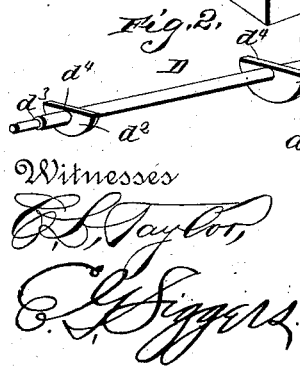 Fig. 2.
d⁴
D
d⁴
d³
d²
d
Witnesses
C. S. Taylor,
E. G. Siggers.